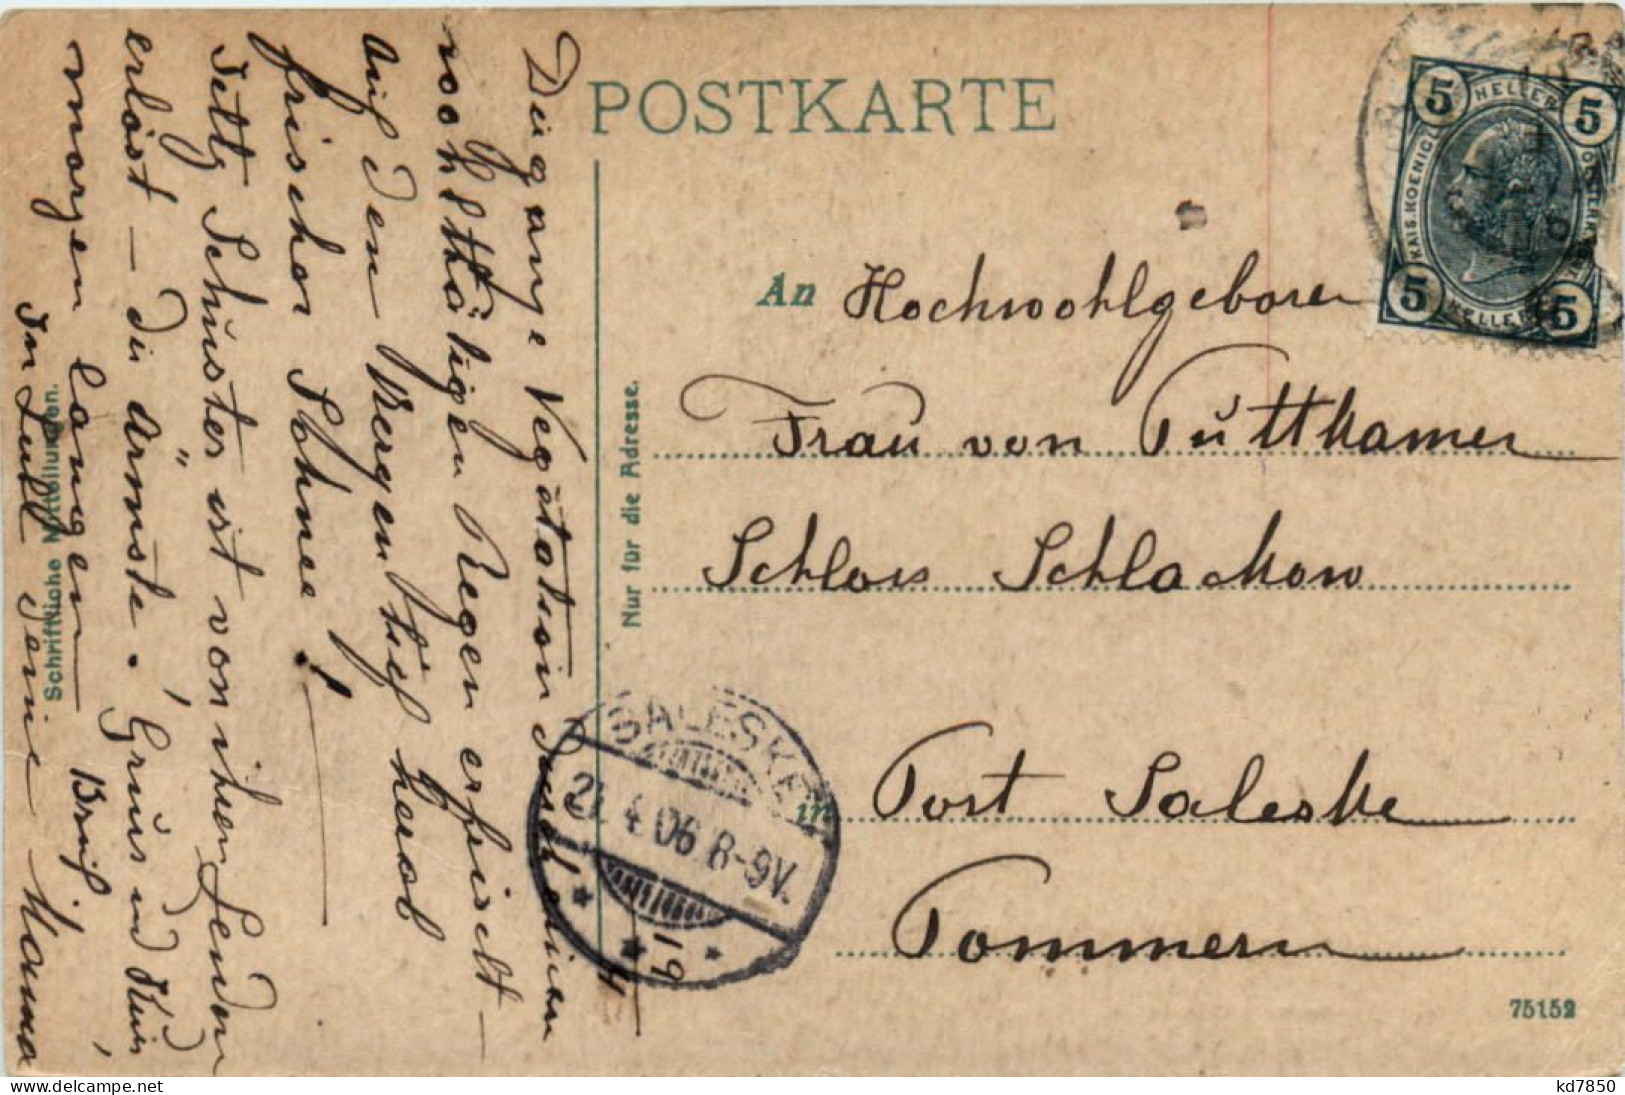 POSTKARTE
5 HELLER 5
KAIS. KOENIGL.
5 HELLER 5
An Hochwohlgeboren
Frau von Puttkamer
Schloss Schlackow
in Post Saleske
Pommern
75152
Nur für die Adresse.
Schriftliche Mitteilungen.
SALESKE
21.4.06.8-9V.
19
4
Die ganze Vegetation durch einen
wohlthätigen Regen erfrischt –
auf den Bergen tief herab
frischer Schnee!
Jetzt Schuster ist von ihren Leiden
erlöst – die Ärmste. Gruss und Kuss,
morgen langen Brief,
In Liebe Deine Mama
kd7850